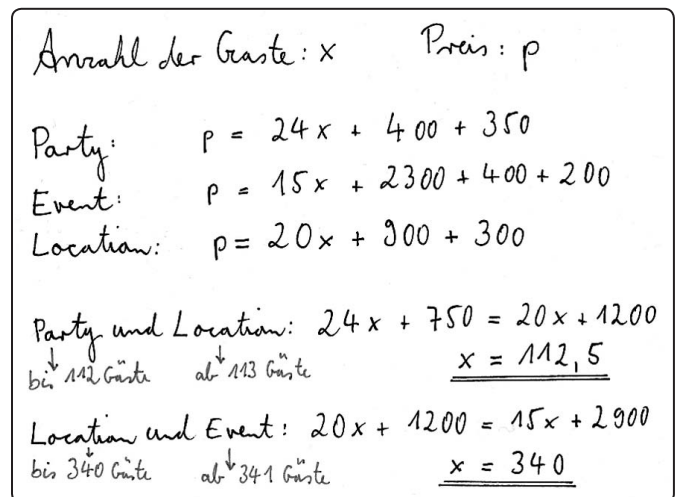 Anzahl der Gäste: x Preis: p
Party: p = 24x + 400 + 350
Event: p = 15x + 2300 + 400 + 200
Location: p = 20x + 900 + 300
Party und Location: 24x + 750 = 20x + 1200
↓ ↓
bis 112 Gäste ab 113 Gäste x = 112,5
Location und Event: 20x + 1200 = 15x + 2900
↓ ↓
bis 340 Gäste ab 341 Gäste x = 340